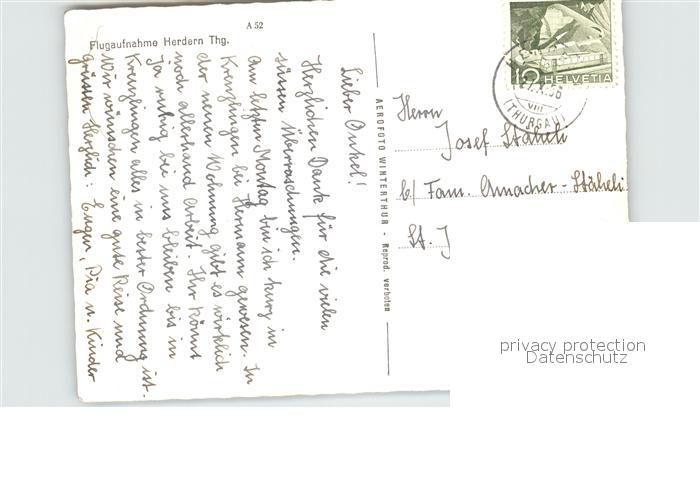 A 52
Flugaufnahme Herdern Thg.
Lieber Onkel!
Herzlichen Dank für die vielen
süssen Überraschungen.
Am letzten Montag bin ich kurz in
Kreuzlingen bei Hermann gewesen. In
der neuen Wohnung gibt es wirklich
noch allerhand Arbeit. Ihr könnt
ja ruhig bei uns bleiben bis in
Kreuzlingen alles in bester Ordnung ist.
Wir wünschen eine gute Reise und
grüssen Herzlich: Eugen, Pia u. Kinder
AEROFOTO WINTERTHUR - Reprod. verboten
10 HELVETIA
VIII
(THURGAU)
Herrn
Josef Stäheli
b/ Fam. Amacher-Stäheli
St. J
privacy protection
Datenschutz